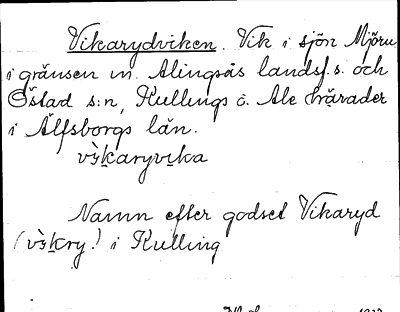 Vikarydviken. Vik i sjön Mjörn
i gränsen m. Alingsås landsf.s. och
Östad s:n, Kullings o. Ale härader
i Älfsborgs län.
vìkaryvika
Namn efter godset Vikaryd
(vìkry!) i Kulling